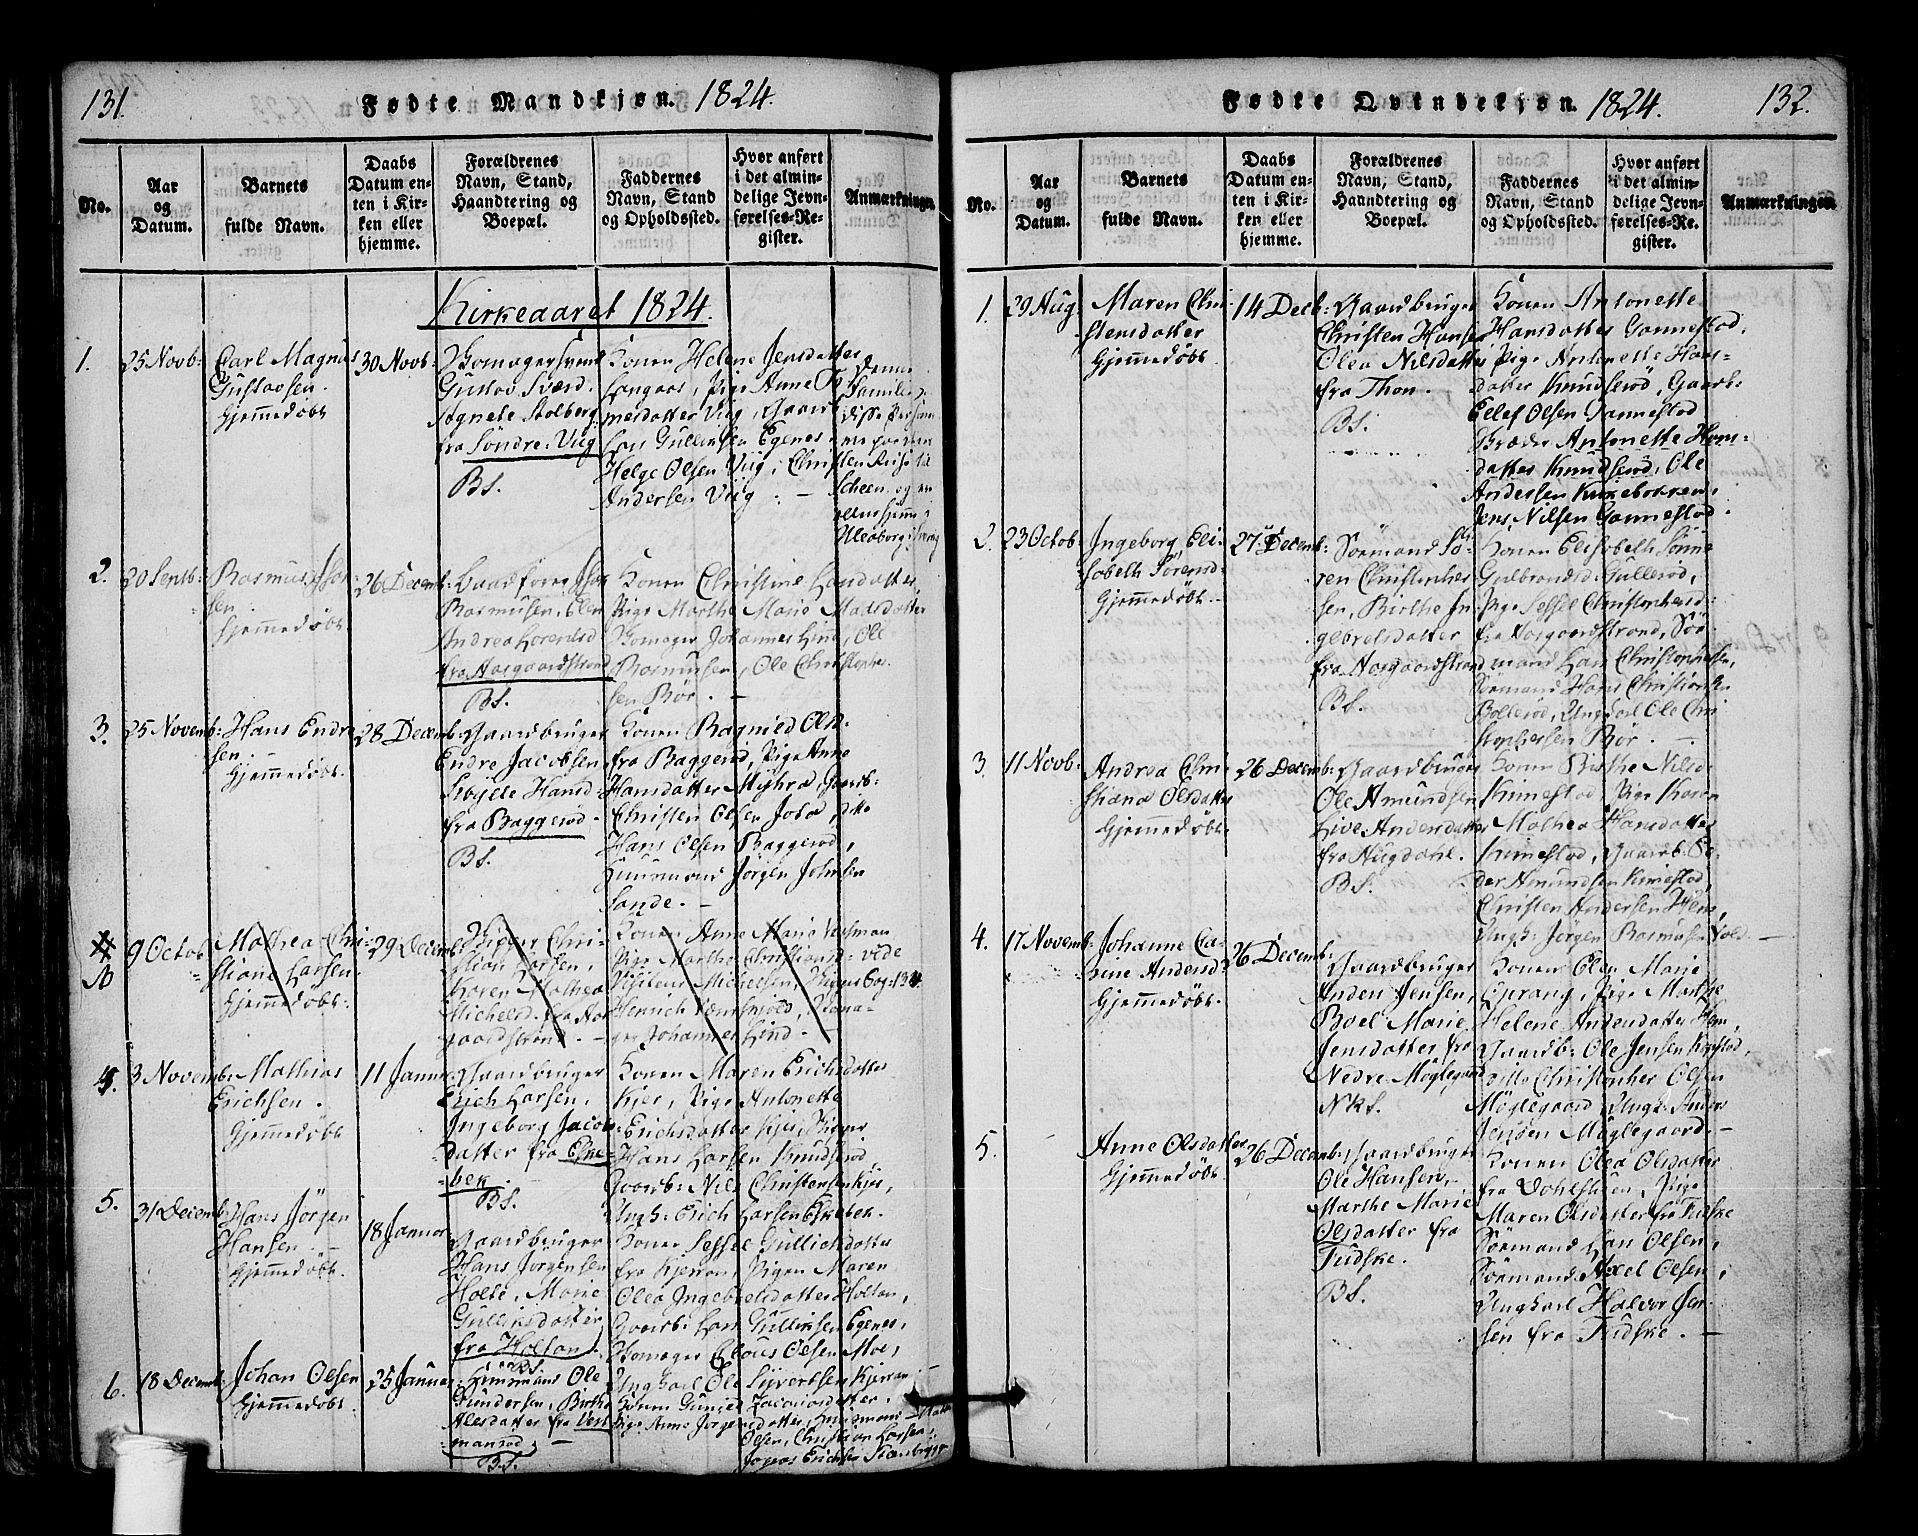 131.
Fødte Mandkjøn. 1824.
No.
Aar og Datum.
Barnets fulde Navn.
Daabs Datum enten i Kirken eller hjemme.
Forældrenes Navn, Stand, Haandtering og Boepæl.
Faddernes Navn, Stand og Opholdssted.
Hvor anført i det almindelige Jevnførelses-Register.
Anmærkninger.
Kirkeaaret 1824.
1.
25 Novb:
Carl Magnus
Gustavsen.
Hjemmedøbt
30 Novb:
Gustov Sværd.
Agnete Stolberg
fra Søndre Viig
BS.
Konen Helene Jensdatter
Langaas, Pige Anne
mesdatter Viig, Gaarb:
Lars Gullichsen Egenes
Helge Olsen Viig, Christen
Andersen Viig. —
Denne
Familie
disse Per
til
Scheen og
2.
20 Septb:
Rasmus
sen.
Hjemmedøbt
26 Decemb:
Rasmussen, Elen
Andrea Lorentsd
fra Aasgaardstrand
BS.
Konen Christine Larsdatter
Pige Marthe Marie Madsdatter
Johannes Lind, Ole
Rasmussen, Ole Christophe
sen Bør. —
3.
25 Novemb:
Hans Endre
sen. —
Hjemmedøbt.
28 Decemb:
Gaardbruger
Endre Jacobsen
Hansd
fra Baggerød.
BS.
Konen Ragnild Olsd.
fra Baggerød, Pige Anne
Hansdatter Myhra, Gaarb:
Christen Olsen, ditto
Hans Olsen Baggerød,
Huusmand Jørgen Johnsen
Sande. —
9 Octob:
Mathea Chri-
stiane Larsen
Hjemmedøbt.
29 Decemb:
Skipper Chri-
stian Larsen,
Karen Mathea
Michelsd. fra Aas-
gaardstrand. —
Konen Anne Marie
Pige Marthe Christiansd.
vide
Michelsen, Skipper
pag: 134
Henrich
Johannes Lind. —
4.
3 Novemb:
Mathias
Erichsen.
Hjemmedøbt
11 Januar
Gaardbruger
Erich Larsen,
Ingeborg Jacobs-
datter fra Eske-
bek.
BS.
Konen Maren Erichsdatter
Kjer, Pige Antonette
Erichsdatter Kjer,
Hans Larsen Knudserød
Gaarb: Nils Christensen Kjer,
Ungk: Erich Larsen Eskebek.
5.
31 Decemb:
Hans Jörgen
Hansen. —
Hjemmedøbt.
18 Januar
Gaardbruger
Hans Jörgensen
Holte, Marie
Gulliksdatter
fra Holtan.
BS.
Konen Sessel Gullichsdatter
fra Kjerran, Pigen Maren
Olea Ingebrelsdatter Holtan,
Gaarb: Lars Gulliksen Egenes,
Claus Olsen Moe,
Ungkarl Ole Sivertsen Kjerran
6.
18 Decemb:
Johan Olsen
Hjemmedøbt
25 Januar
Huusmand Ole
Gundersen, Birthe
datter fra Vest-
mansrød. —
BS.
Konen Gunild Zacariasdatter,
Pige Anne Jørgensdatter, Huusmand
Olsen, Christian Larsen
Erichsen
132.
Fødte Qvindekjøn. 1824.
No.
Aar og Datum.
Barnets fulde Navn.
Daabs Datum enten i Kirken eller hjemme.
Forældrenes Navn, Stand, Haandtering og Boepæl.
Faddernes Navn, Stand og Opholdssted.
Hvor anført i det almindelige Jevnførelses-Register.
Anmærkninger.
1.
29 Aug:
Maren Chri
stensdatter
Hjemmedøbt
14 Decb:
Gaardbruger
Christen Hansen
Olea Nilsdatter
fra Thon.
BS.
Konen Antonette
Hansdatter Gannestad,
Pige Antonette Hans-
datter Knudserød, Gaarb:
Ellef Olsen Gannestad
Antonette Hans-
datter Knudserød, Ole
Andersen Kirkebakken,
Jens Nilsen Gannestad.
2.
23 Octob:
Ingeborg Eli-
sabeth Sørensd
Hjemmedøbt. —
27 Decemb:
Sørmand Sö-
ren Christopher
sen, Birthe In
gebrelsdatter
fra Aasgaardstrand
BS.
Konen Elisabeth
Gulbrandsd. Gullerød,
Pige Sessel Christophersd:
fra Aasgaardstrand, Sør
mand Lars Christophersen,
Sørmand Hans Christians
Bollerød, Ungkarl Ole Chri
stophersen Bör. —
3.
11 Novb:
Andrea Chri
stiana Olsdatter
Hjemmedøbt.
26 Decemb:
Gaardbruger
Ole Amundsen
Live Andersdatter
fra Augdahl.
BS.
Konen Birthe Nilsd-
Kimestad, Pige Karen
Mathea Hansdatter
Kimestad, Gaarb: Pe-
der Amundsen Kimestad,
Christen Andersen Hem,
Ungk: Jørgen Rasmussen Vold —
4.
17 Novemb:
Johanne Ca-
trine Andersd.
Hjemmedøbt.
26 Decemb:
Gaardbruger
Anders Jensen,
Boel Marie
Jensdatter fra
Nedre Møglegaard
NKS.
Konen Olea Marie
Sprang, Pige Marthe
Helene Andersdatter Hem,
Gaardb: Ole Jensen
ditto Christopher Olsen
Møglegaard, Ungk: Anders
Jensen Møglegaard. —
5.
—
Anne Olsdatter
Hjemmedøbt.
26 Decemb:
Gaardbruger
Ole Hansen,
Marthe Marie
Olsdatter fra
Tudske.
BS.
Konen Olea Olsdatter
fra Dahlstuen, Pige
Maren Olsdatter fra Tudske
Sørmand Lars Olsen,
Sørmand Axel Olsen,
Ungkarl Halvor Jen-
sen fra Tudske. —